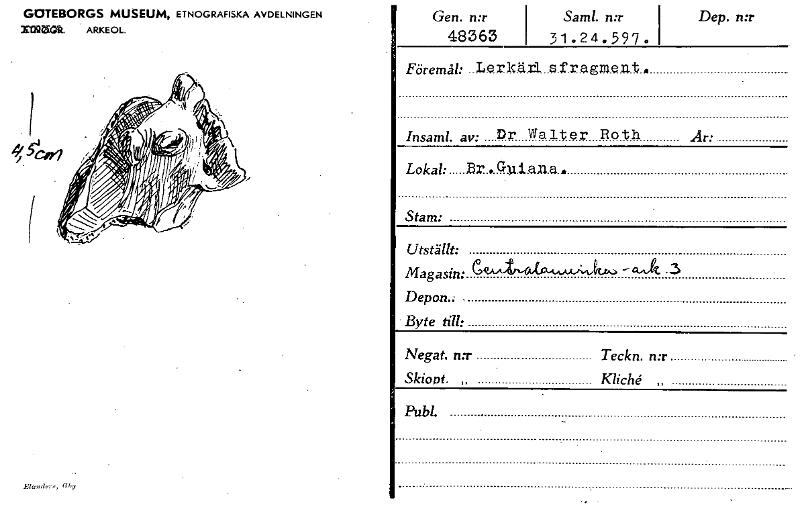 GÖTEBORGS MUSEUM, ETNOGRAFISKA AVDELNINGEN
ARKEOL.
4,5 cm
Elanders, Gbg
Gen. n:r Saml. n:r Dep. n:r
48363 31.24.597.
Föremål: Lerkärl sfragment.
Insaml. av: Dr Walter Roth År:
Lokal: Br.Guiana.
Stam:
Utställt:
Magasin: Centralamerika-ark 3
Depon.:
Byte till:
Negat. n:r Teckn. n:r
Skiopt. „ Kliché „
Publ.